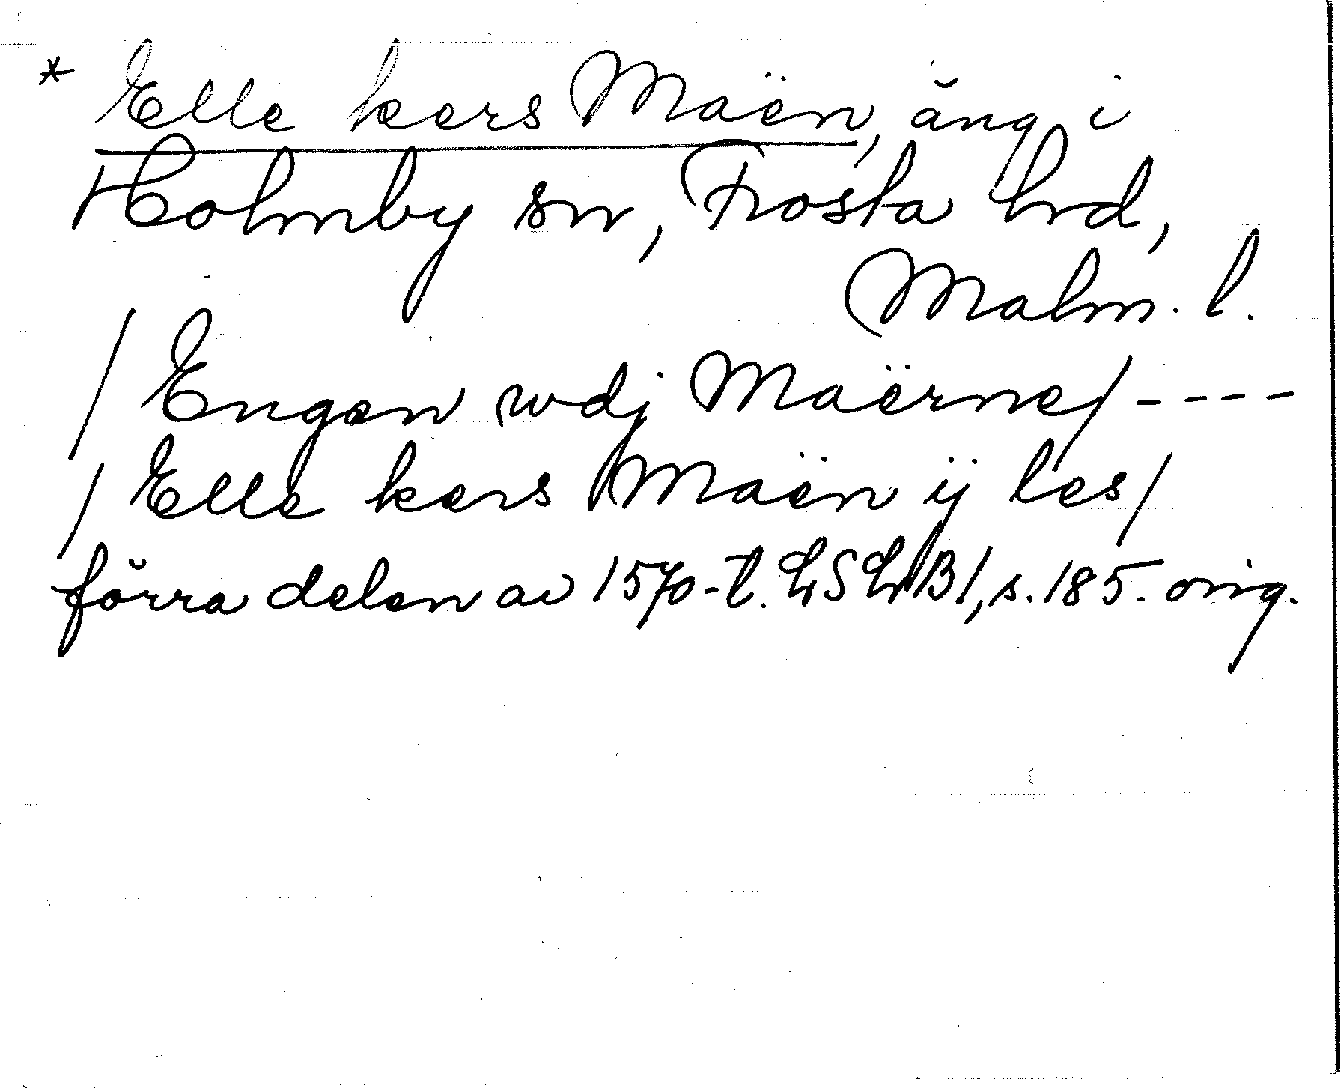 * Elle kers Maën, äng i
Holmby sn, Frosta hrd,
Malm. l.
/ Engen wdj Maërne/ ----
/ Elle kers Maën ÿ les/
förra delen av 1570-t. LSLB1, s. 185. orig.